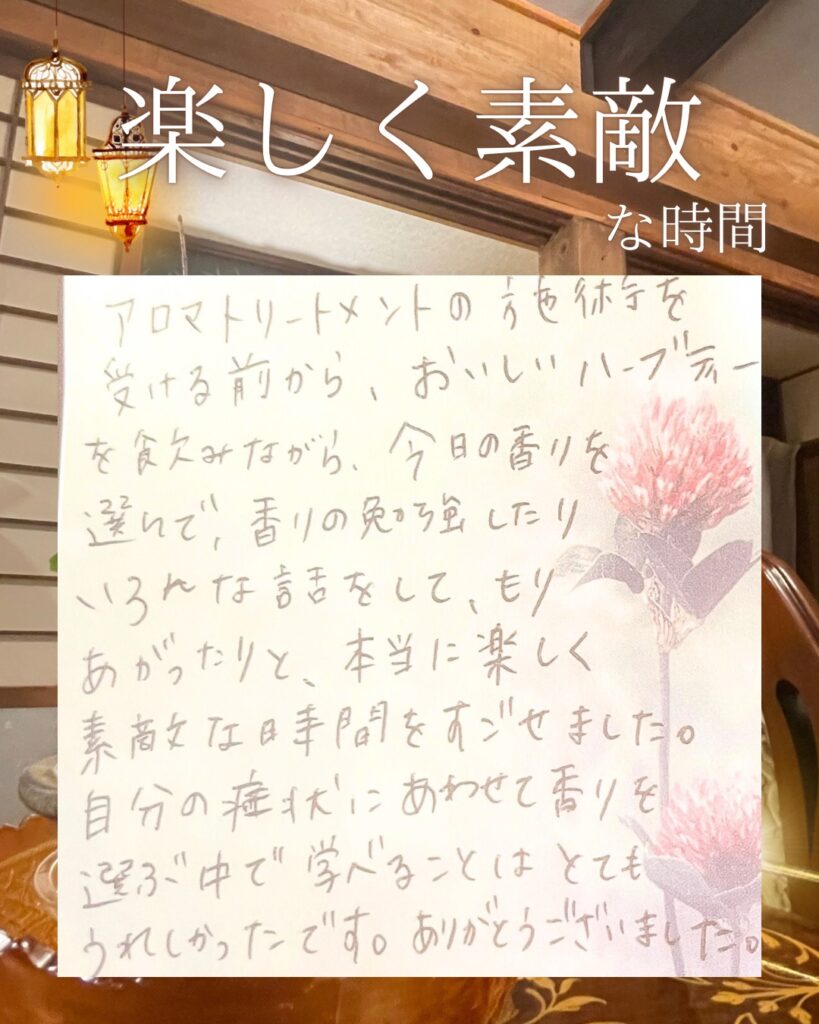 楽しく素敵
な時間
アロマトリートメントの施術を
受ける前から、おいしいハーブティー
を飲みながら、今日の香りを
選んで、香りの勉強したり
いろんな話をして、もり
あがったりと、本当に楽しく
素敵な時間をすごせました。
自分の症状にあわせて香りを
選ぶ中で学べることはとても
うれしかったです。ありがとうございました。